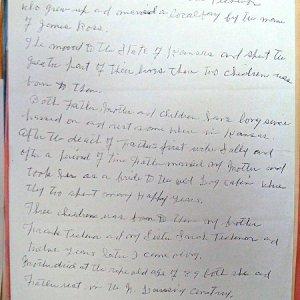 who grew up and married a local boy by the name
of James Ross.
They moved to the State of Kansas and spent the
greater part of their lives there two children were
born to them.
Both Father Mother and children have long since
passed on and rest some where in Kansas.
After the death of Fathers first wife Sally and
after a period of time Father married my Mother and
took her as a bride to the old Log cabin where
they too spent many Happy years.
Three children was born to them my brother
Frank and my Sister Sarah and
years later I come along.
Mother died at the ripe old age of 89 both she and
Father rest in the cemetery.